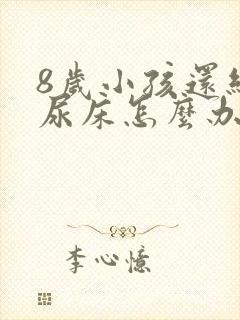 8歲小孩還經
尿床怎麼办
李心憶